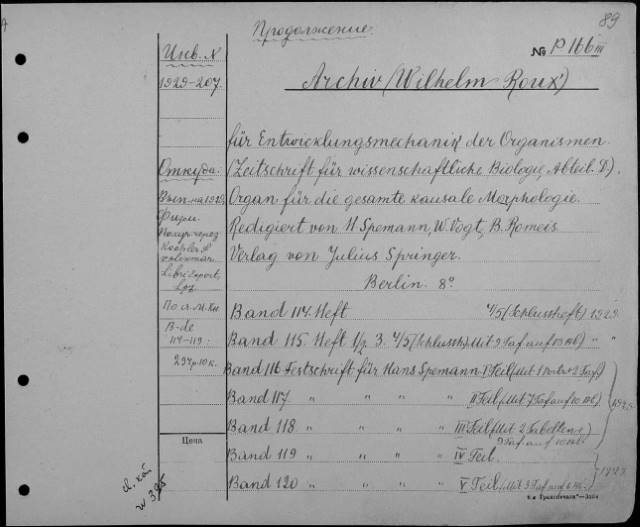 89
Продолжение.
Инв. N
№ P 166 III
1929-207.
Archiv (Wilhelm Roux)
für Entwicklungsmechanik der Organismen.
Откуда:
(Zeitschrift für wissenschaftliche Biologie, Abteil. D).
Вып. на 1929
Organ für die gesamte kausale Morphologie.
Фирм.
Redigiert von H Spemann, W. Vogt, B. Romeis
Получ через
Koehler &
Volckmar
Verlag von Julius Springer.
Libri Export,
Lpz
Berlin. 8º
Band 114. Heft 4/5 (Schlussheft) 1929.
B-de
114-119.
Band 115. Heft 1/2. 3. 4/5 (Schlussh.) Mit 9 Taf " "
Band 116 Festschrift für Hans Spemann I Teil (Mit 1 2 Taf.)
Band 117 " " " " II Teil (Mit 7 Taf auf
Band 118 " " " " III Teil (Mit 2 Tabellen,
9 Taf auf
Цена
Band 119 " " " " IV Teil.
1929
Band 120 " " " " V Teil (Mit 3 Taf auf